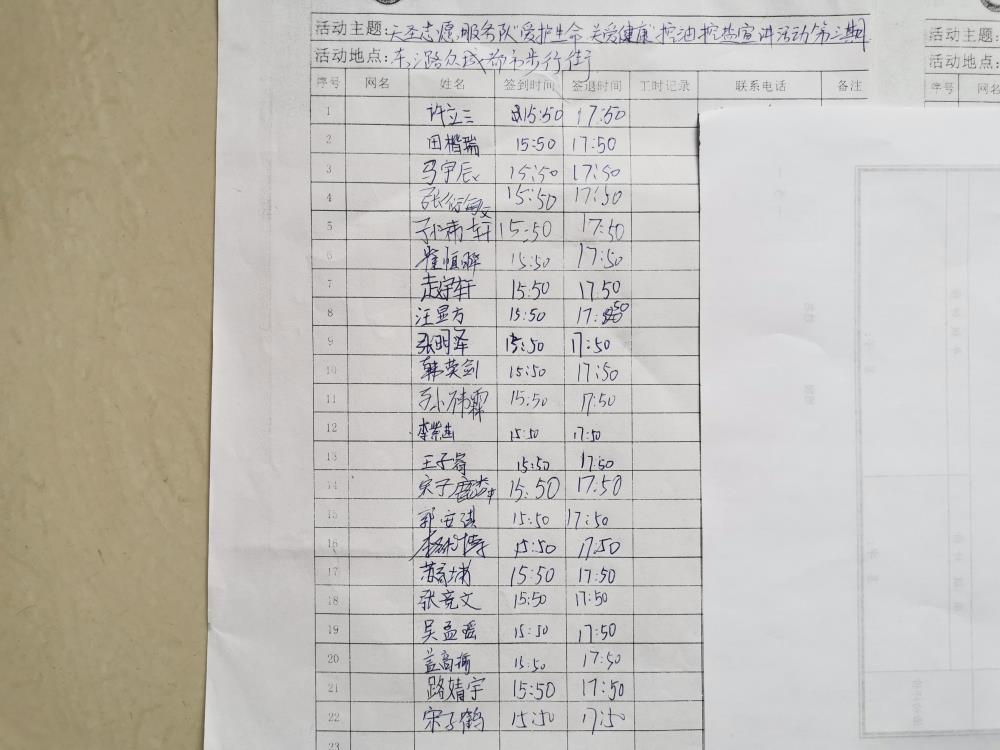 活动主题:天圣志愿服务队"爱护生命 关爱健康"控油控盐宣讲活动第三期
活动地点:东 路众成都市步行街
序号 网名 姓名 签到时间 签退时间 工时记录 联系电话 备注
1 许立三 15:50 17:50
2 田楷瑞 15:50 17:50
3 马宇辰 15:50 17:50
4 张 15:50 17:50
5 轩 15:50 17:50
6 崔恒晔 15:50 17:50
7 轩 15:50 17:50
8 汪显方 15:50 17:50
9 张明泽 15:50 17:50
10 韩荣剑 15:50 17:50
11 霖 15:50 17:50
12 李紫菡 15:50 17:50
13 王子睿 15:50 17:50
14 宋子 15:50 17:50
15 郭安琪 15:50 17:50
16 15:50 17:50
17 15:50 17:50
18 张竞文 15:50 17:50
19 吴孟瑶 15:50 17:50
20 15:50 17:50
21 路婧宇 15:50 17:50
22 宋子鹤 15:50 17:50
23
活动主题:
活动地点:
序号 网名